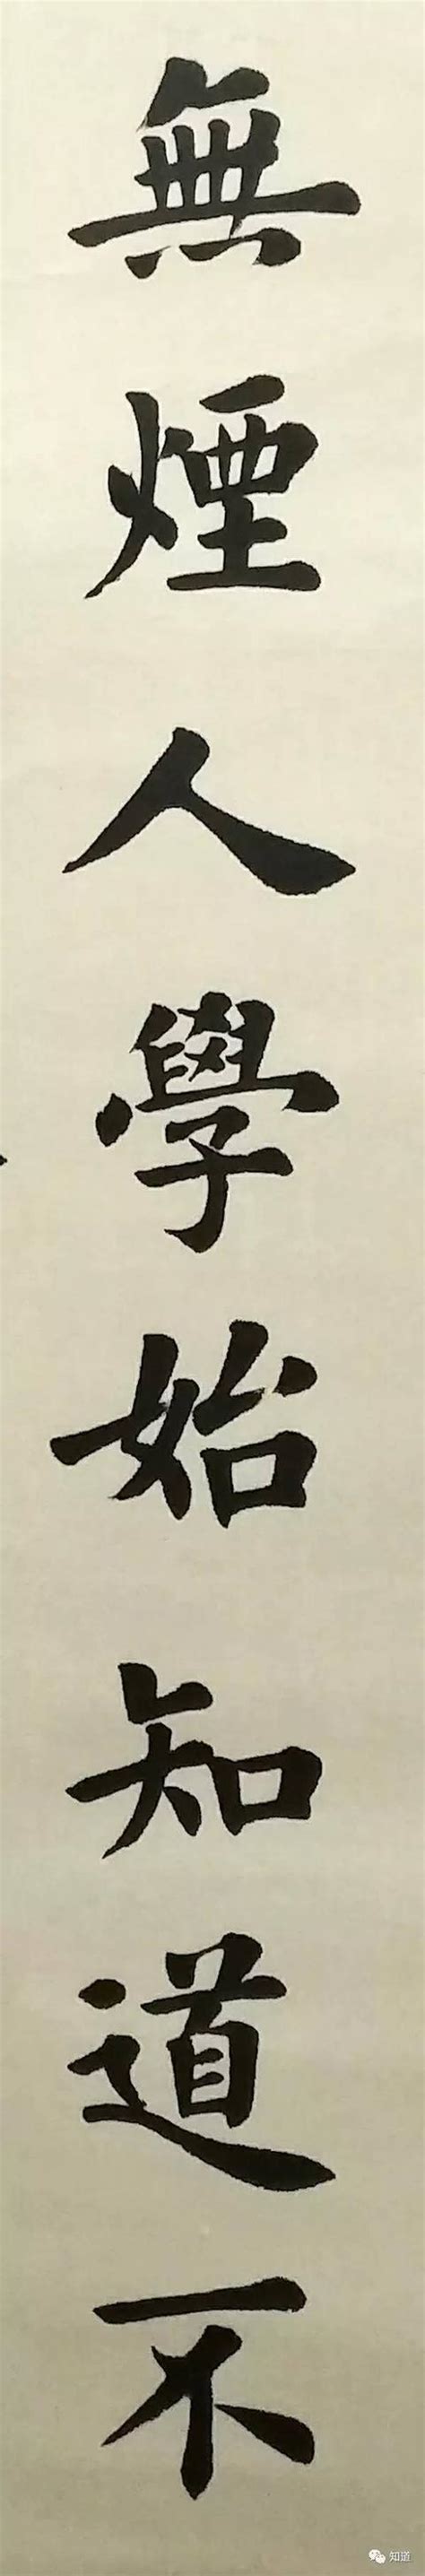 無煙人學始知道不
知道